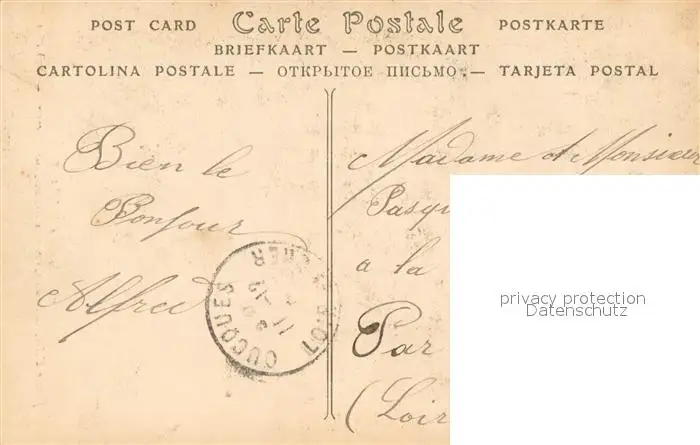 POST CARD Carte Postale POSTKARTE
BRIEFKAART — POSTKAART
CARTOLINA POSTALE — ОТКРЫТОЕ ПИСЬМО — TARJETA POSTAL
Bien le
Bonjour
Alfred
OUCQUES
LOIR
CHER
Madame et Monsieur
Pasqu
a la
Par
(Loir
privacy protection
Datenschutz